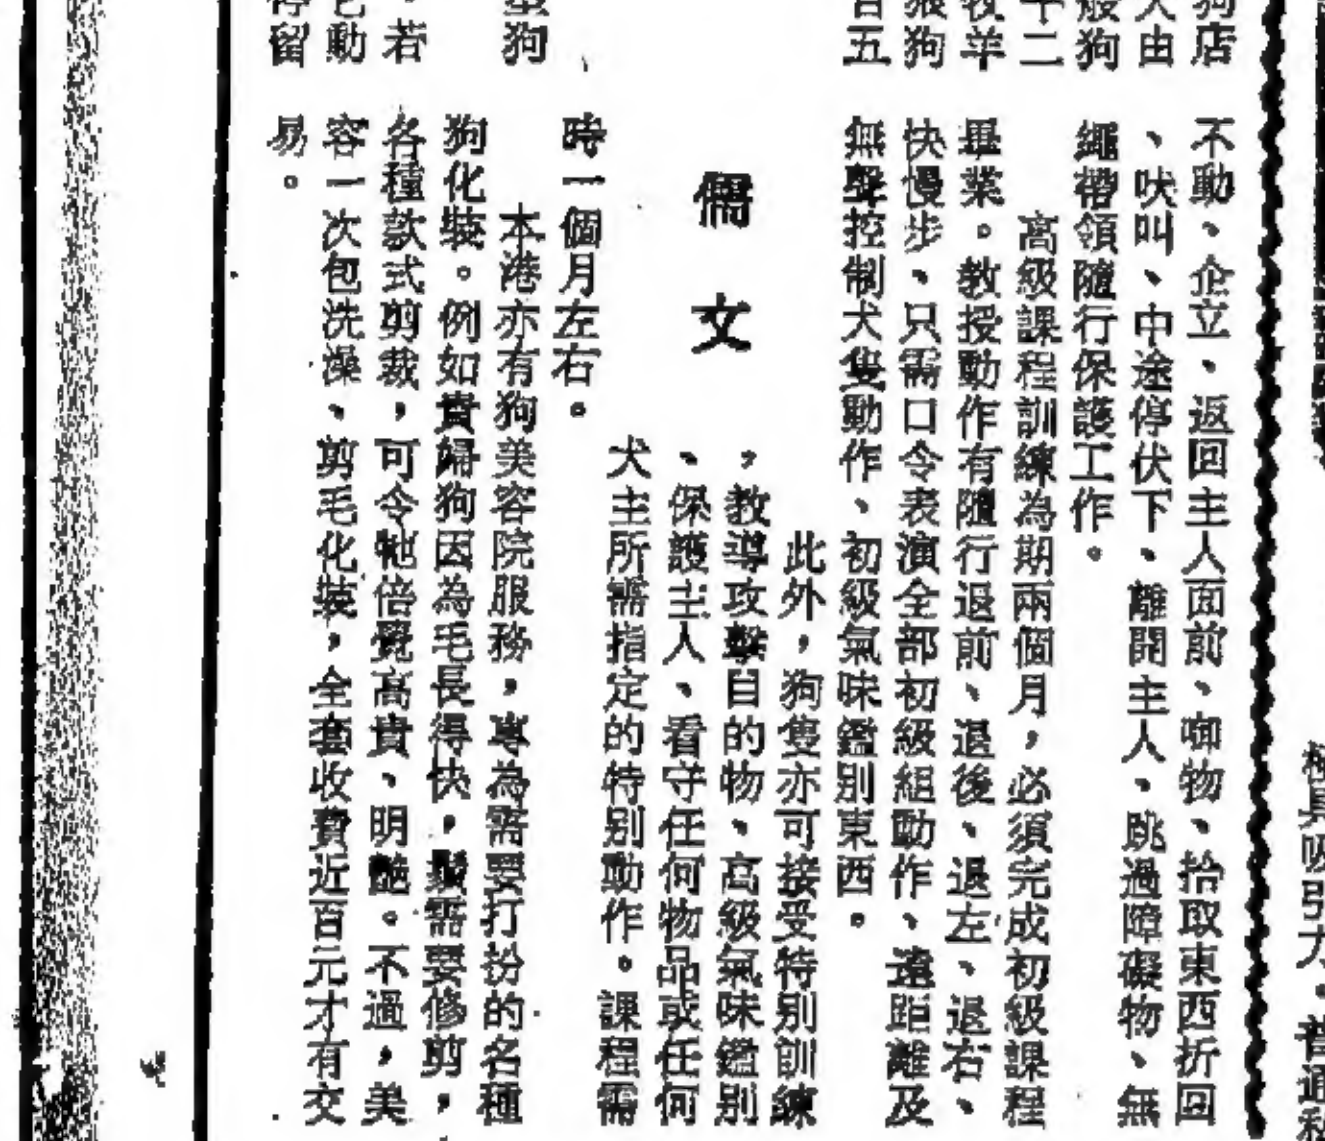 狗店
人由
般狗
十二
牧羊
狼狗
百五
不動、企立、返回主人面前、啣物、拾取東西折回
、吠叫、中途停伏下、離開主人、跳過障礙物、無
繩帶領隨行保護工作。
高級課程訓練為期兩個月，必須完成初級課程
畢業。教授動作有隨行退前、退後、退左、退右、
快慢步、只需口令表演全部初級組動作、遠距離及
無聲控制犬隻動作、初級氣味鑑別東西。
此外，狗隻亦可接受特別訓練
，教導攻擊目的物、高級氣味鑑別
、保護主人、看守任何物品或任何
犬主所需指定的特別動作。課程需
時一個月左右。
儒文
本港亦有狗美容院服務，專為需要打扮的名種
狗化裝。例如貴婦狗因為毛長得快，鬚需要修剪，
各種款式剪裁，可令牠倍覺高貴、明艷。不過，美
容一次包洗澡、剪毛化裝，全套收費近百元才有交
易。
狗
，若
動
停留
極具吸引力。普通